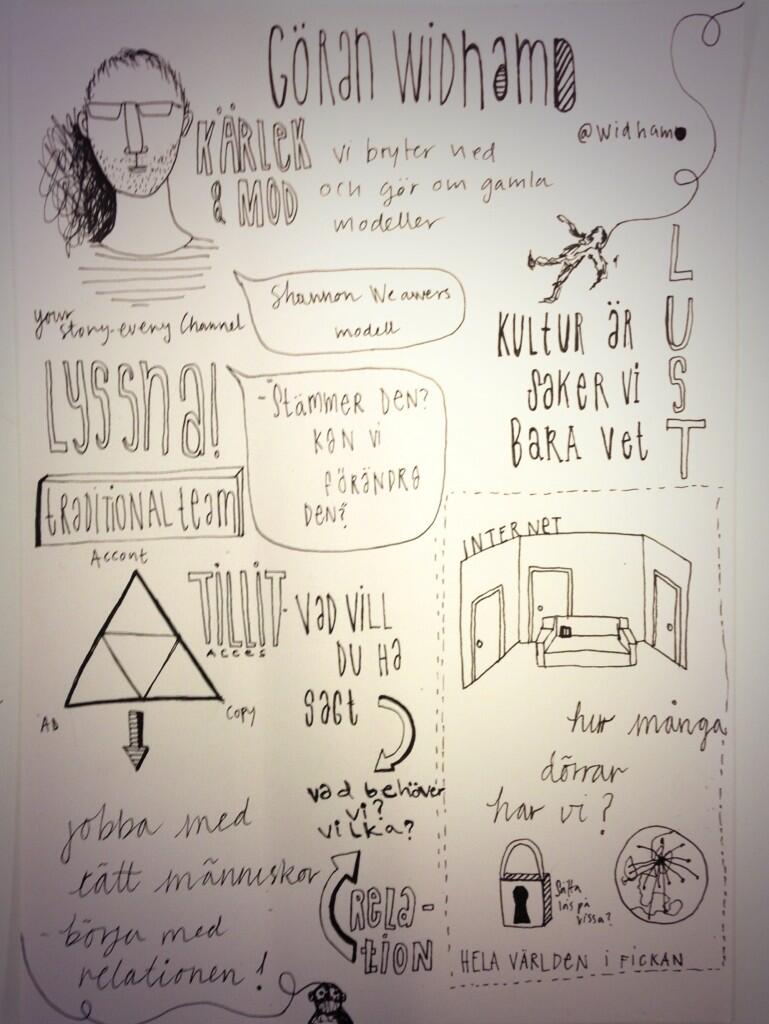 GÖRAN WIDHAMD
@widham
KÄRLEK
& MOD
vi bryter ned
och gör om gamla
modeller
your
story-every Channel
Shannon Weawers
modell
LYSSNA!
-Stämmer DEN?
KAN Vi
FÖRÄNDRA
DEN?
LUST
KULTUR ÄR
SAKER Vi
BARA Vet
TRADITIONAL team
Accont
AD
Copy
TILLIT-
Acces
VAD VILL
DU HA
SAGT
vad behöver
vi?
vilka?
RELA-
TION
jobba med
tätt människor
- börja med
relationen!
INTERNET
hur många
dörrar
har vi?
Sätta
lås på
vissa?
HELA VÄRLDEN i FICKAN